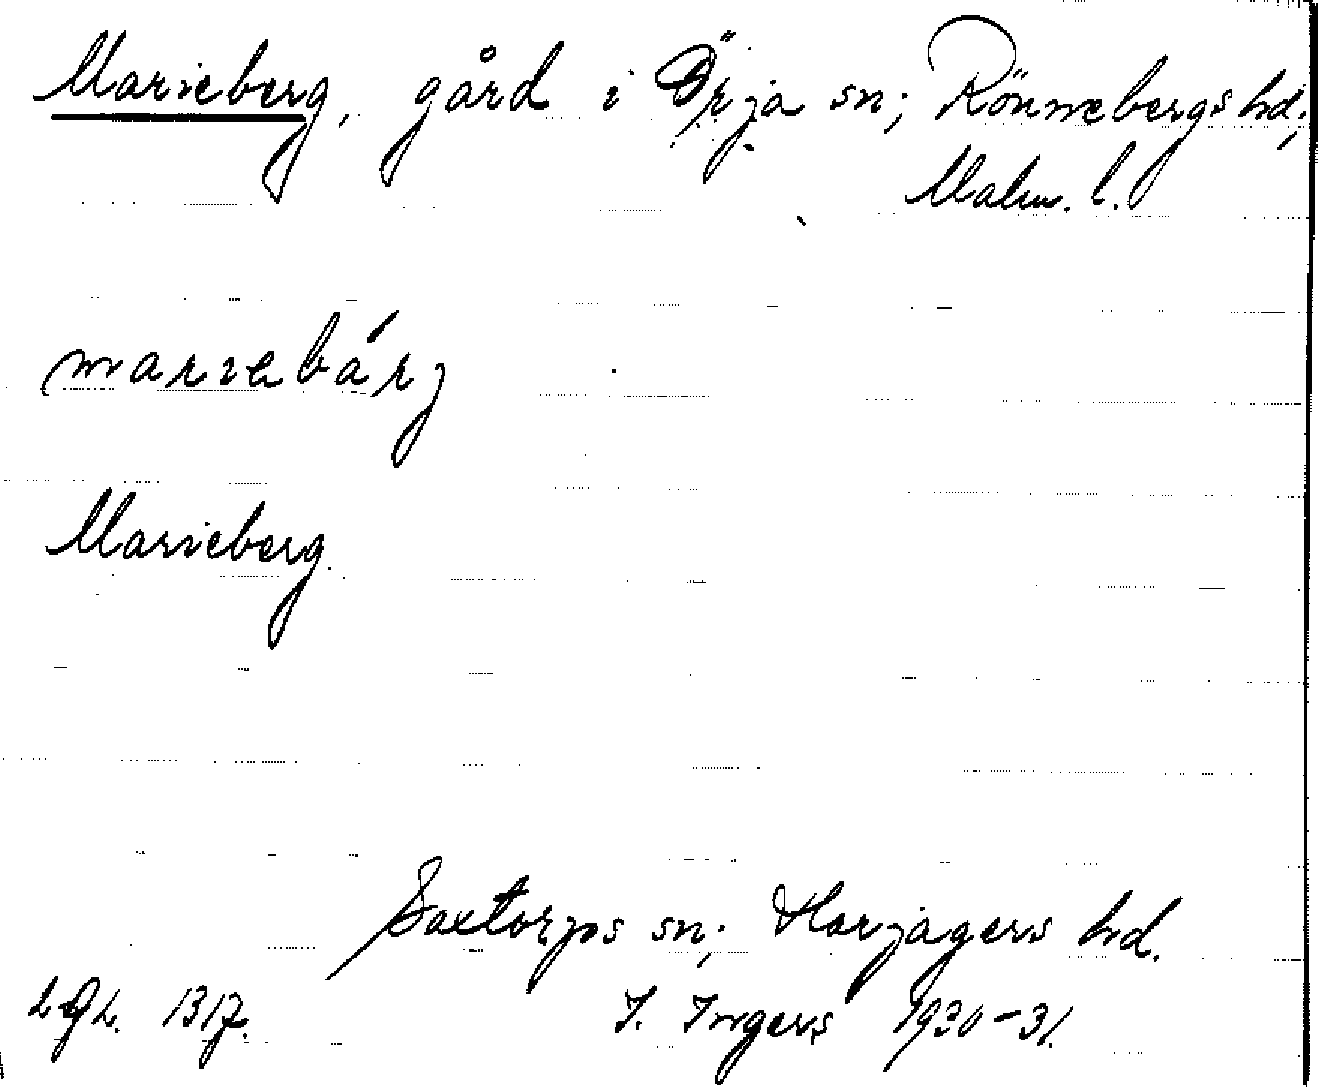 Marieberg, gård i Örja sn; Rönnebergs hd;
Malm. l.
Marieberg.
Saxtorps sn; Harjagers hd.
1317. I. Ingers 1930-31.